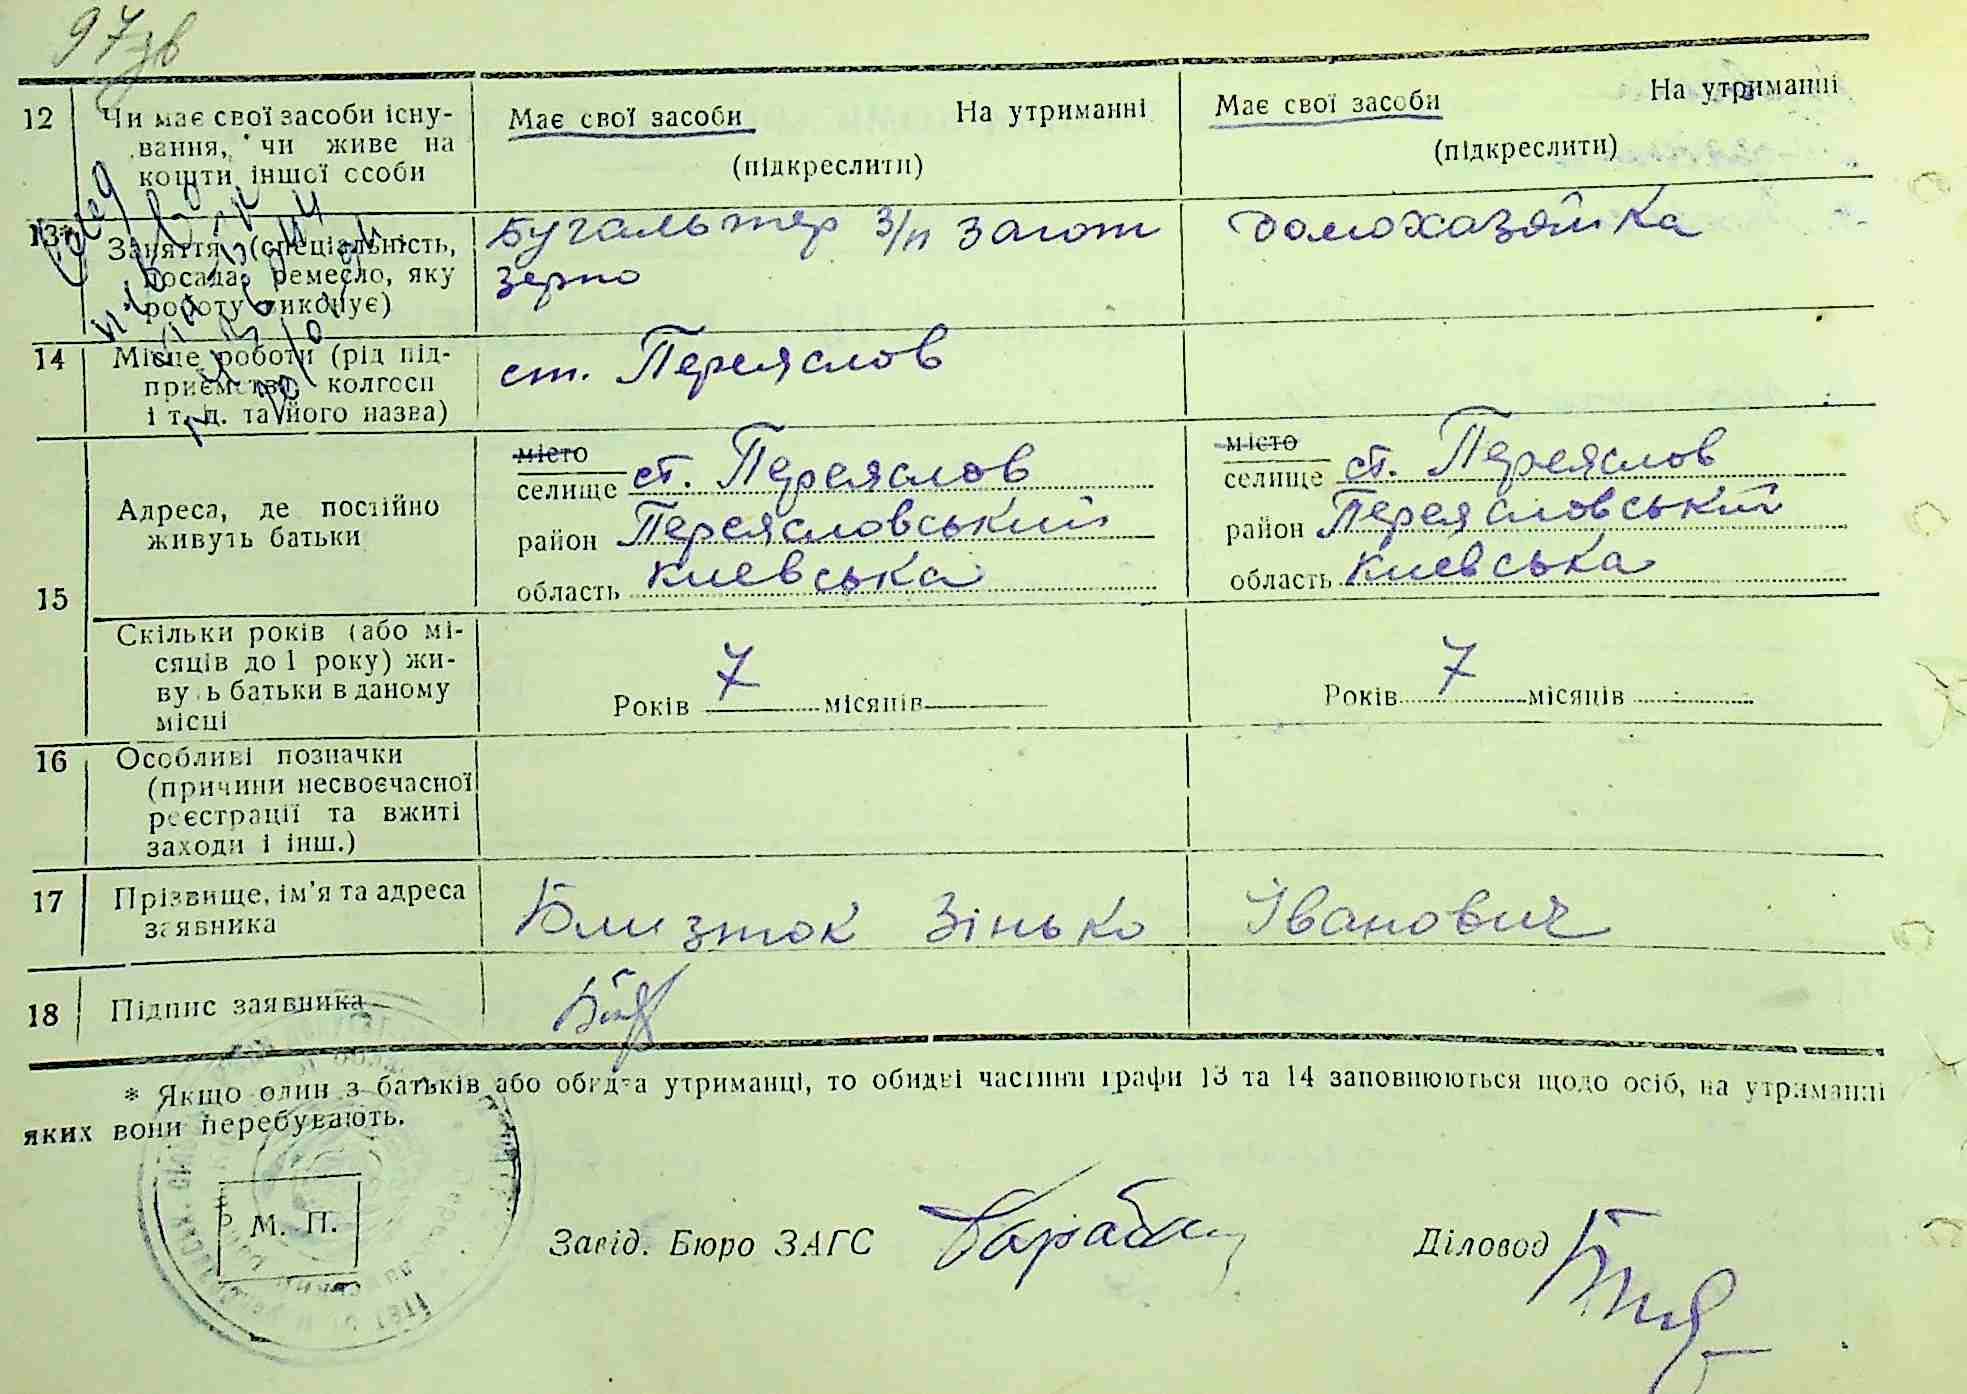 97зв
12 Чи має свої засоби існу-
вання, чи живе на
кошти іншої особи
Має свої засоби На утриманні
(підкреслити)
Має свої засоби На утриманні
(підкреслити)
13* Заняття (спеціальність,
посада, ремесло, яку
роботу виконує)
Бугальтер З/п Загот
зерно
домохазяйка
14 Місце роботи (рід під-
приємства, колгосп
і т. д. та його назва)
ст. Переяслов
15 Адреса, де постійно
живуть батьки
місто
селище ст. Переяслов
район Переясловський
область Киевська
місто
селище ст. Переяслов
район Переясловський
область Киевська
Скільки років (або мі-
сяців до 1 року) жи-
вуть батьки в даному
місці
Років 7 місяців
Років 7 місяців
16 Особливі позначки
(причини несвоєчасної
реєстрації та вжиті
заходи і інш.)
17 Прізвище, ім'я та адреса
заявника
Близток Зінько Іванович
18 Підпис заявника
* Якщо один з батьків або обидва утриманці, то обидві частини графи 13 та 14 заповнюються щодо осіб, на утриманні
яких вони перебувають.
М. П.
Завід. Бюро ЗАГС
Діловод